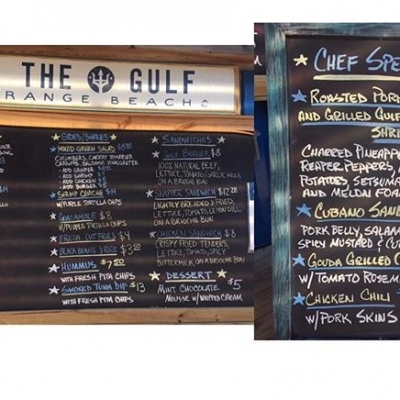 THE GULF
RANGE BEACH
SIDES/SHARES
MIXED GREEN SALAD
+ ADD SHRIMP
+ ADD CHICKEN
+ ADD BURGER
W/PURPLE TORTILLA CHIPS
GUACAMOLE $8
W/PURPLE TORTILLA CHIPS
FRESH CUT FRIES $4
BLACK BEANS & RICE
HUMMUS
WITH FRESH PITA CHIPS
SMOKED TUNA DIP $13
WITH FRESH PITA CHIPS
SANDWICHES
GULF BURGER $8
LETTUCE, TOMATO,
ON A BRIOCHE BUN
SNAPPER SANDWICH
LIGHTLY BREADED & FRIED,
LETTUCE, TOMATO,
ON A BRIOCHE BUN
CHICKEN SANDWICH $8
CRISPY FRIED TENDERS,
LETTUCE, TOMATO, SPICY
BUTTERMILK ON A BRIOCHE BUN
DESSERT
MINT CHOCOLATE $5
MOUSSE W/WHIPPED CREAM
CHEF SPE
ROASTED PORK
AND GRILLED GULF
SHRI
CHARRED PINEAPPL
REAPER PEPPERS,
POTATOES, SETSUMA
AND MELON FOAM
CUBANO SAND
PORK BELLY, SALAM
SPICY MUSTARD &
GOUDA GRILLED C
W/TOMATO ROSEM
CHICKEN CHILI
W/PORK SKINS